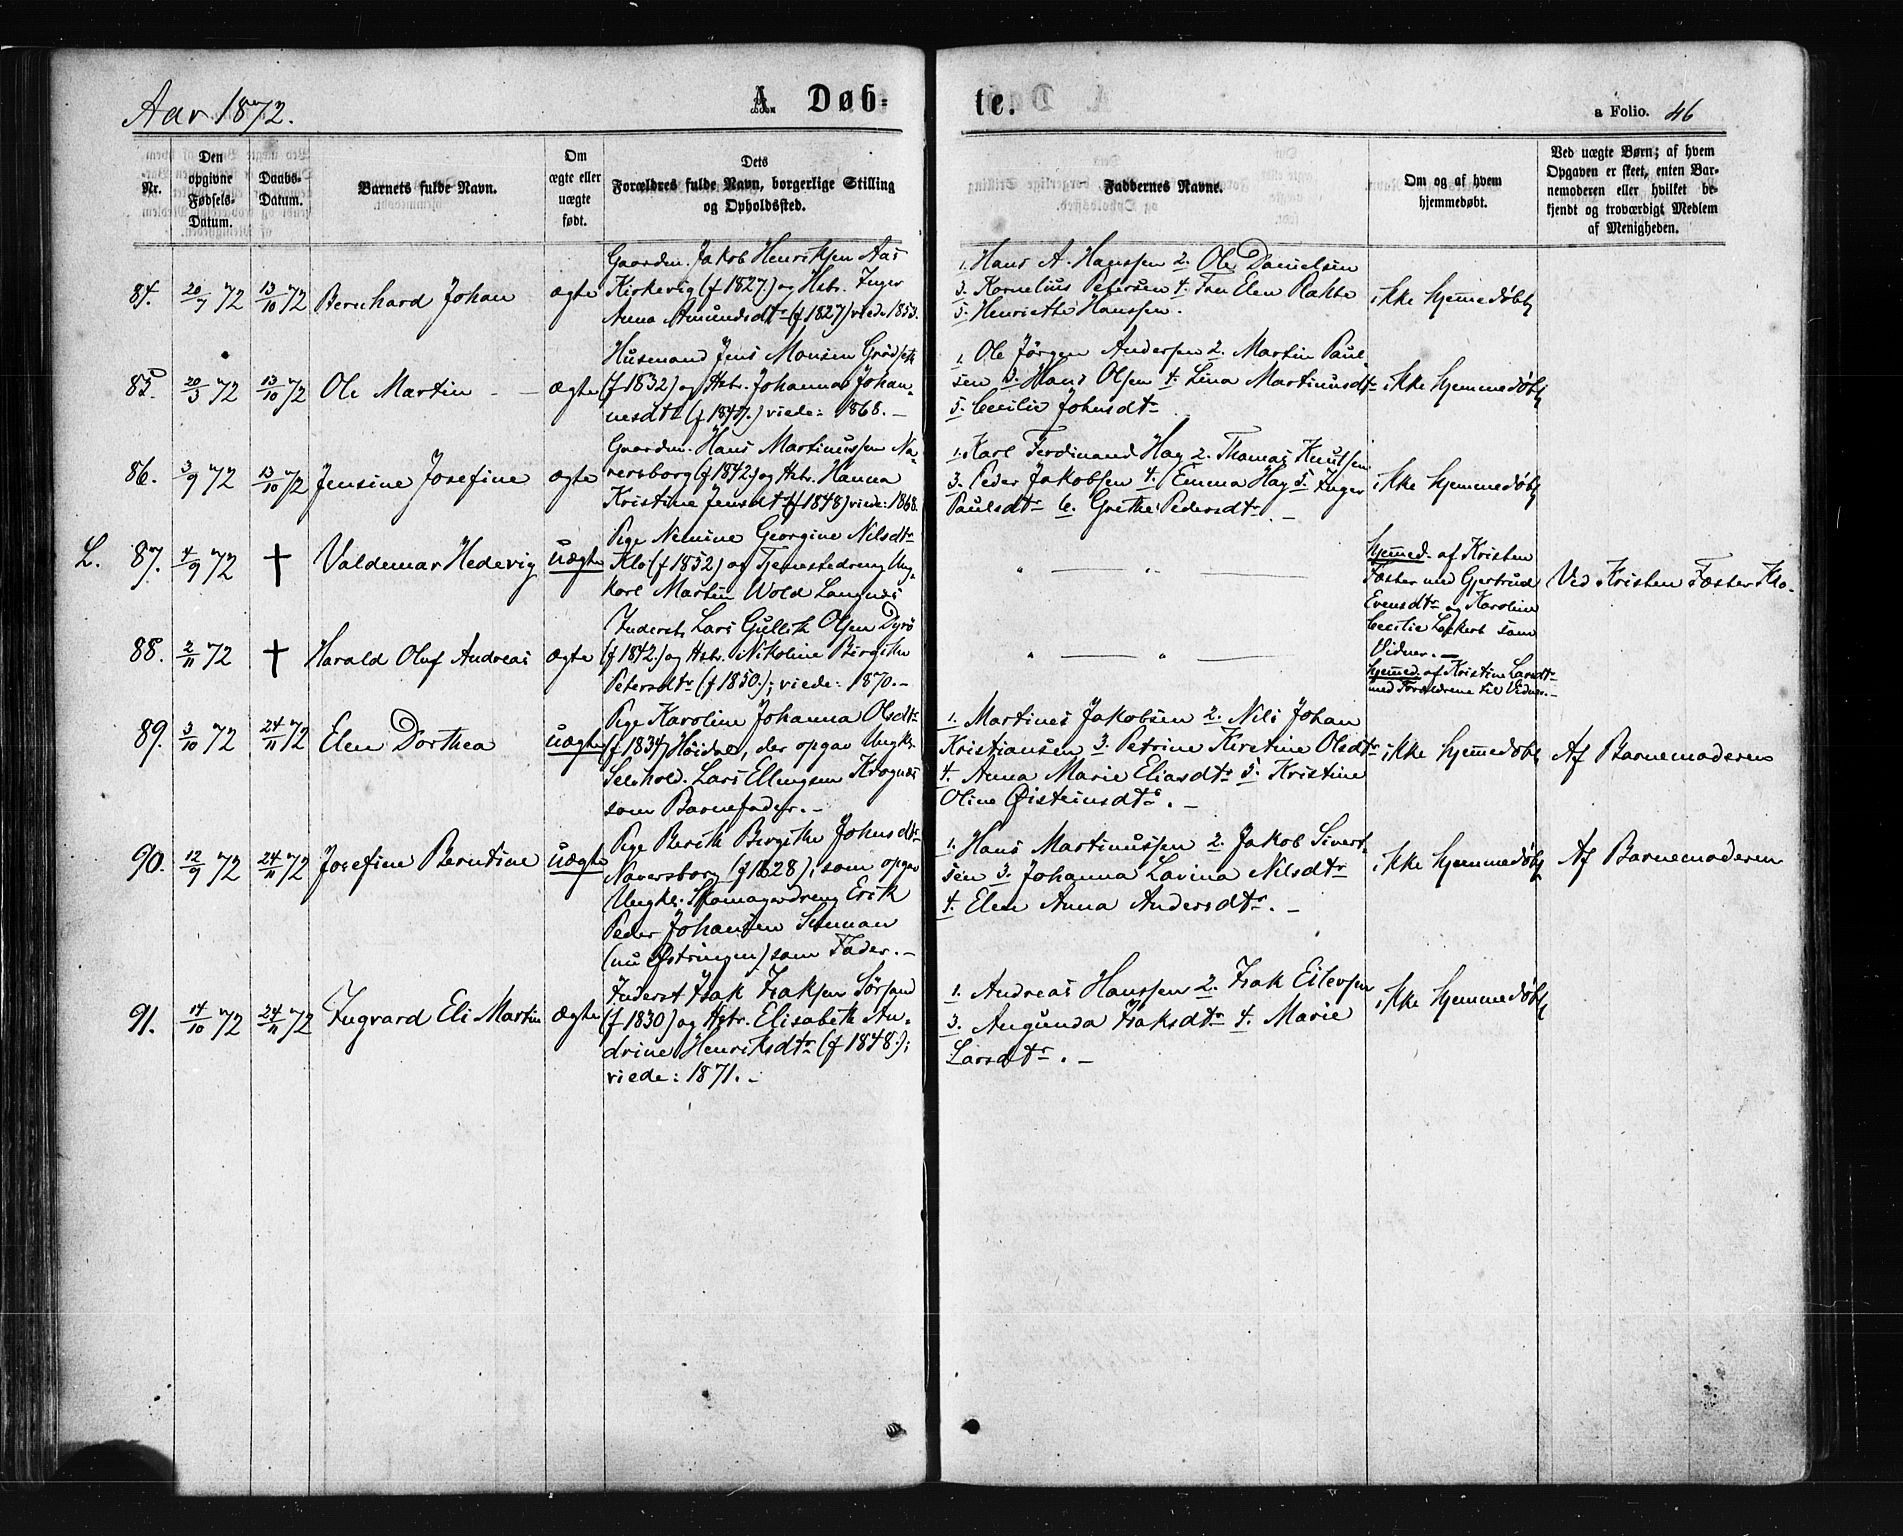 Aar 1872.
A. Døb-
te.
a Folio. 46
Nr.
Den
opgivne
Fødsels-
Datum.
Daabs-
Datum.
Barnets fulde Navn.
Om
ægte eller
uægte
født.
Dets
Forældres fulde Navn, borgerlige Stilling
og Opholdssted.
Faddernes Navne.
Om og af hvem
hjemmedøbt.
Ved uægte Børn; af hvem
Opgaven er skeet, enten Bar-
nemoderen eller hvilket be-
kjendt og troværdigt Medlem
af Menigheden.
84. 20/7 72 13/10 72 Bernhard Johan ægte
Gaardm. Jakob Henriksen Aas
Kirkevig (f 1827.) og Hstr. Inger
Anna Amundsdtr (f 1827) viede 1853.
1. Hans A. Hanssen 2. Ole Danielsen
3. Kornelius Petersen 4. Fru Elen Rakte
5. Henriette Hanssen.
ikke hjemmedøbt
85. 20/3 72 13/10 72 Ole Martin - - ægte
Husmand Jens Monsen
(f 1832) og Hstr. Johanna Johan-
nesdtr (f 1847.) viede: 1868. -
1. Ole Jørgen Andersen 2. Martin Paul-
sen 3. Hans Olsen 4. Lina Martinusdtr
5. Cecilie Johnsdtr
ikke hjemmedøbt
86. 3/9 72 13/10 72 Jensine Josefine ægte
Gaardm. Hans Martinussen Na-
versborg (f 1842.) og Hstr. Hanna
Kristine Jensdtr (f 1848) viede: 1868.
1. Karl Ferdinand Hag 2. Thomas Knutsen
3. Peder Jakobsen 4. Emma Hag 5. Inger
Paulsdtr 6. Grethe Pedersdtr. -
ikke hjemmedøbt
L. 87. 4/9 72 † Valdemar Hedevig uægte
Pige Nemine Georgine Nilsdtr
Klo (f 1852) og Tjenestedreng Ung-
karl Martin Wold Langnes
" - " -
hjemmed. af Kristen
Fæster med Gjertrud
Evensdtr og Karoline
Cecilie som
Vidner. -
Ved Kristen Fæster Klo.
88. 2/11 72 † Harald Oluf Andreas ægte
Inderst. Lars Gullik Olsen Dyrö
(f 1842.) og Hstr. Nikoline Birgithe
Petersdtr (f 1850.); viede: 1870. -
" - " -
hjemmed. af Kristine Larsdtr
med Forældrene til Vidner. -
89. 3/10 72 24/11 72 Elen Dorthea uægte
Pige Karoline Johanna Olsdtr
(f 1834) Høidal, der opgav Ungk.
Selvhold. Lars Ellingsen Krognes
som Barnefader. -
1. Martines Jakobsen 2. Nils Johan
Kristiansen 3. Petrine Kirstine Olsdtr
4. Anna Marie Eliasdtr 5. Kristine
Oline Øisteinsdtr. -
ikke hjemmedøbt
Af Barnemoderen
90. 12/9 72 24/11 72 Josefine Berntine uægte
Pige Berith Birgithe Johnsdtr
Naversborg (f 1828); som opgav
Ungk. Skomagerdreng Erik
Peder Johansen
(nu Østringen) som Fader. -
1. Hans Martinussen 2. Jakob Sivert-
sen 3. Johanna Lavina Nilsdtr
4. Elen Anna Andersdtr. -
ikke hjemmedøbt
Af Barnemoderen
91. 14/10 72 24/11 72 Ingvard Eli Martin ægte
Inderst Isak Isaksen Sørsand
(f 1830) og Hstr. Elisabeth An-
drine Henriksdtr (f 1848.);
viede: 1871. -
1. Andreas Hanssen 2. Isak Eilevsen
3. Augunda Isaksdtr 4. Marie
Larsdtr. -
ikke hjemmedøbt